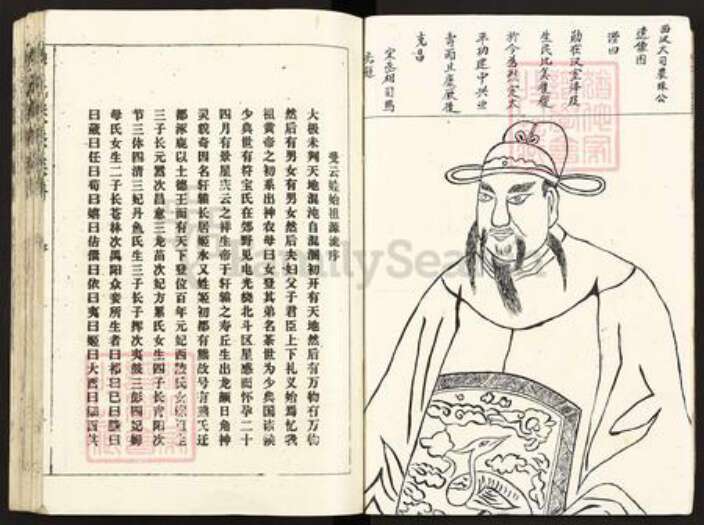 西汉大司农珠公
遗像图
潜曰
勋在汉室泽及
生民比美夔龙
於今为烈宋太
平功建中兴世
青南且度厥後
克昌
宋丞相司馬
光题
受云姓始祖源流序
大极未判天地混沌自混溯初开有天地然后有万物有万物
然后有男女有男女然后夫妇父子君臣上下礼义始焉忆我
祖黄帝之初系出神农母曰女登其弟名荼世为少典国诸侯
少典世有符宝氏在郊野见电光绕北斗区星感而怀孕二十
四月有景星庆云之祥生帝于轩辕之寿丘生出龙颜日角神
灵貌奇四名轩辕长居姬水又姓姬初都有熊故号有熊氏迁
都涿鹿以土德王而有天下登位百年元妃西陵氏女嫘祖生
三子长元嚣次昌意三龙苗次妃方累氏女生四子长青阳次
节三休四清三妃丹鱼氏生三子长子挥次夷鼓三彭四妃嫫
母氏女生二子长苍林次禺阳众妾所生者曰祁曰已曰滕曰
曰葴曰任曰荀曰嬉曰佶儇曰依曰夷曰姬曰大
FamilySearch